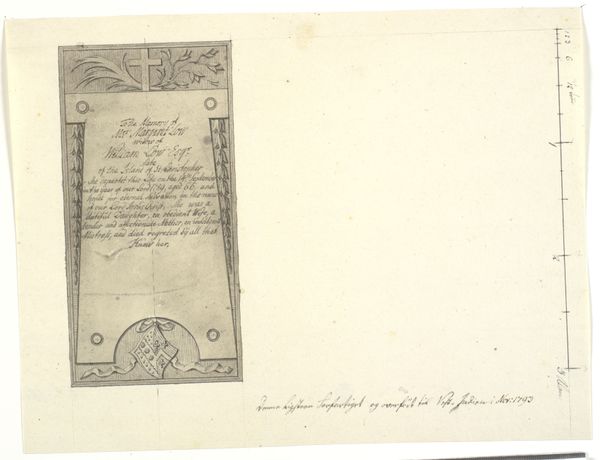 To the Memory of
Mrs. Margaret Low
widow of
William Low Esqr.
late
of the Island of St. Christopher
she departed this Life on the 14th September
in the year of our Lord 1789, aged 66, and
hoped for eternal Salvation in the name
of our Lord Jesus Christ. She was a
dutiful Daughter, an obedient Wife, a
tender and affectionate Mother, an indulgent
Mistress, and died regreted by all that
Knew her.
Denne Ligsteen og overført til Vest Indien i Nov: 1793